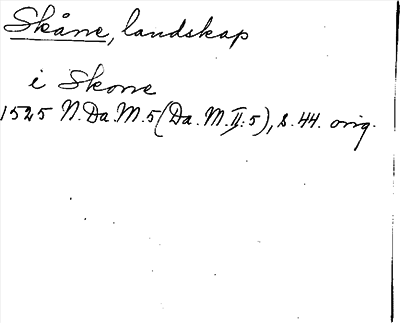 Skåne, landskap
i Skone
1525 N.Da.M.5(Da.M.II:5), s.44. orig.